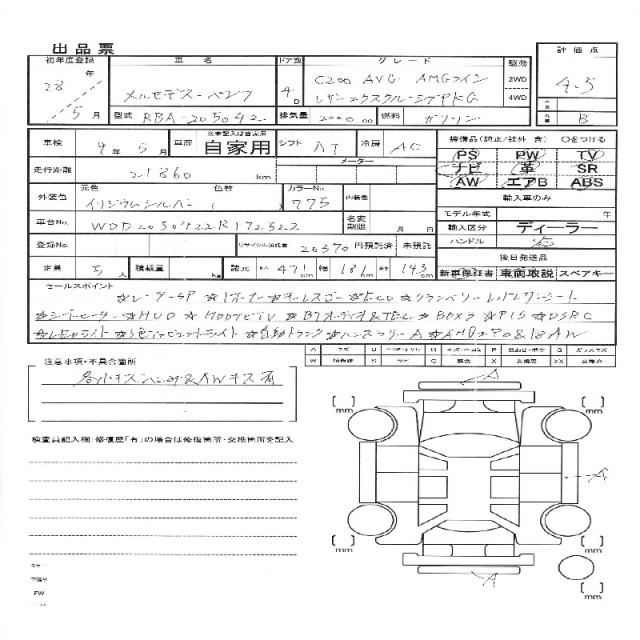 出品票
初年度登録 車名 ドア数 グレード 駆動 評価点
28年5月 メルセデス-ベンツ 4D C200 AVG AMGライン 2WD 4WD 4.5
レザーエクスクルーシブPKG
型式 RBA-205042 排気量 2000 燃料 ガソリン B
車検 9年5月 車歴 ※未記入は自家用 自家用 シフト AT 冷房 AC
装備品(純正/社外 含) ○をつける
PS PW TV
ナビ 革 SR
AW エアB ABS
走行距離 メーター
21860 km
外装色 元色 色替 カラーNo. 内装色
イリジウムシルバー ( 775
輸入車のみ
モデル年式 年
車台No. WDD2050422R172522 名変期限 月 日
輸入区分 ディーラー
ハンドル 右
登録No. リサイクル預託金 20370 円預託済 未預託
後日発送品
定員 5人 積載量 kg 諸元 長さ 471 cm 幅 181 cm 高さ 143 cm
新車保証書 車両取説 スペアキー
セールスポイント
☆レーダーSP ☆1オーナー ☆キーレスゴー ☆ECO ☆クランベリーレッドレザーシート
☆シートヒーター ☆HUD ☆HDDナビTV ☆BTオーディオ&TEL ☆Bカメラ ☆PTS ☆DSRC
☆LEDライト ☆3色アンビエントライト ☆自動トランク ☆ハンズフリーA ☆AMGエアロ&18AW
注意事項・不具合箇所
各所キズヘコミ&AWキズ有
検査員記入欄:修復歴「有」の場合は修復箇所・交換箇所を記入
A
[ ] mm
[ ] mm
A
[ ] mm
[ ] mm
A
[ ] mm